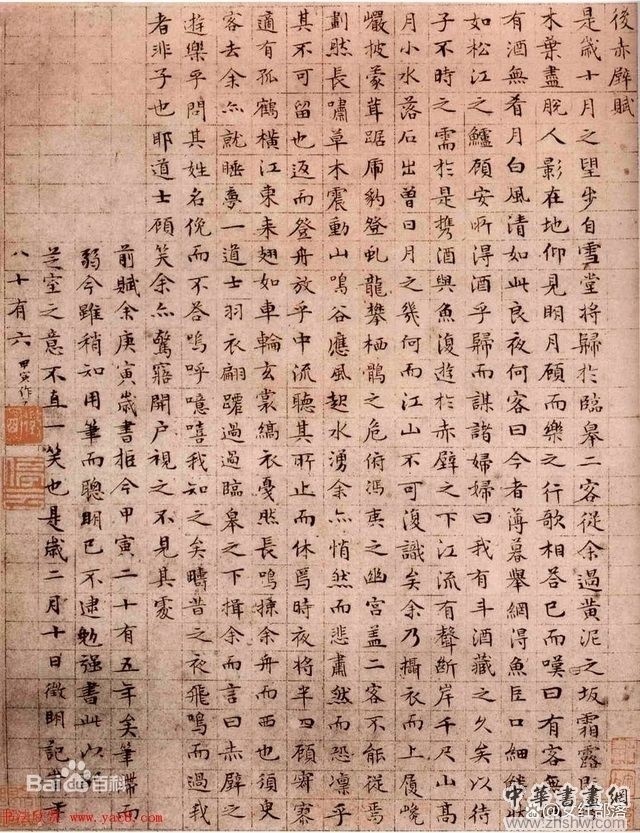 後赤壁賦
是歲十月之望步自雪堂將歸於臨皋二客從余過黃泥之坂霜露
木葉盡脫人影在地仰見明月顧而樂之行歌相答已而嘆曰有客無
有酒無肴月白風清如此良夜何客曰今者薄暮舉網得魚巨口細
如松江之鱸顧安所得酒乎歸而謀諸婦婦曰我有斗酒藏之久矣以待
子不時之需於是攜酒與魚復遊於赤壁之下江流有聲斷岸千尺山高
月小水落石出曾日月之幾何而江山不可復識矣余乃攝衣而上履巉
巖披蒙茸踞虎豹登虬龍攀栖鶻之危俯馮夷之幽宮蓋二客不能從焉
劃然長嘯草木震動山鳴谷應風起水湧余亦悄然而悲肅然而恐凜乎
其不可留也返而登舟放乎中流聽其所止而休焉時夜將半四顧寂寥
適有孤鶴橫江東來翅如車輪玄裳縞衣戛然長鳴掠余舟而西也須臾
客去余亦就睡夢一道士羽衣翩躚過過臨皋之下揖余而言曰赤壁之
遊樂乎問其姓名俛而不答嗚呼噫嘻我知之矣疇昔之夜飛鳴而過我
者非子也耶道士顧笑余亦驚寤開戶視之不見其處
前賦余庚寅歲書拒今甲寅二十有五年矣筆滯而
弱今雖稍知用筆而聰明已不逮勉強書此以
芝室之意不直一笑也是歲三月十日徵明記時年
八十有六 甲寅作
Bai百科
书法欣赏 www.yac8.com
中華書畫網
www.zhshw.com